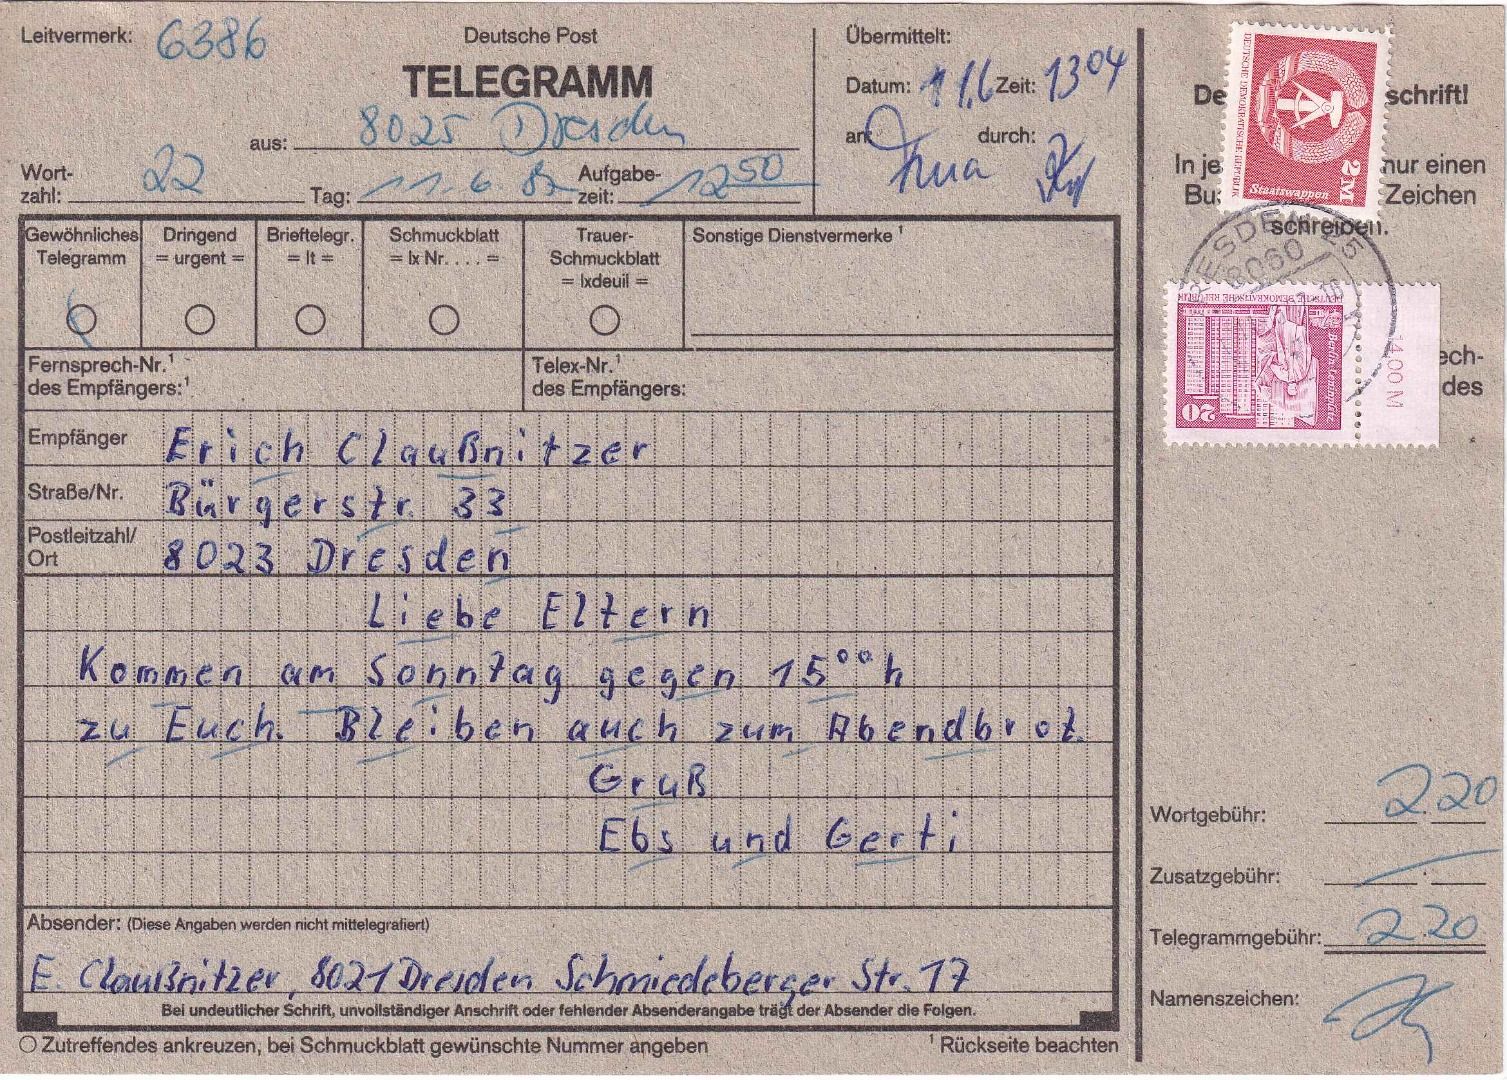 Leitvermerk: 6386
Deutsche Post
TELEGRAMM
aus: 8025 Dresden
Wort-
zahl: 22
Tag: 11.6.82
Aufgabe-
zeit: 1250
Übermittelt:
Datum: 11.6 Zeit: 1304
an durch:
schrift!
nur einen
Zeichen
schreiben.
ech-
des
DEUTSCHE DEMOKRATISCHE REPUBLIK
Staatswappen
2 M
DRESDEN 25
8060
DEUTSCHE DEMOKRATISCHE REPUBLIK
Berlin-Leninplatz
20
14,00 M
Gewöhnliches
Telegramm
Dringend
= urgent =
Brieftelegr.
= lt =
Schmuckblatt
= lx Nr. . . . =
Trauer-
Schmuckblatt
= lxdeuil =
Sonstige Dienstvermerke ¹
Fernsprech-Nr.¹
des Empfängers:¹
Telex-Nr.¹
des Empfängers:
Empfänger Erich Claußnitzer
Straße/Nr. Bürgerstr. 33
Postleitzahl/
Ort 8023 Dresden
Liebe Eltern
Kommen am Sonntag gegen 15°°h
zu Euch. Bleiben auch zum Abendbrot.
Gruß
Ebs und Gerti
Absender: (Diese Angaben werden nicht mittelegrafiert)
E. Claußnitzer, 8021 Dresden Schmiedeberger Str. 17
Bei undeutlicher Schrift, unvollständiger Anschrift oder fehlender Absenderangabe trägt der Absender die Folgen.
Zutreffendes ankreuzen, bei Schmuckblatt gewünschte Nummer angeben
¹ Rückseite beachten
Wortgebühr: 2.20
Zusatzgebühr:
Telegrammgebühr: 2.20
Namenszeichen: